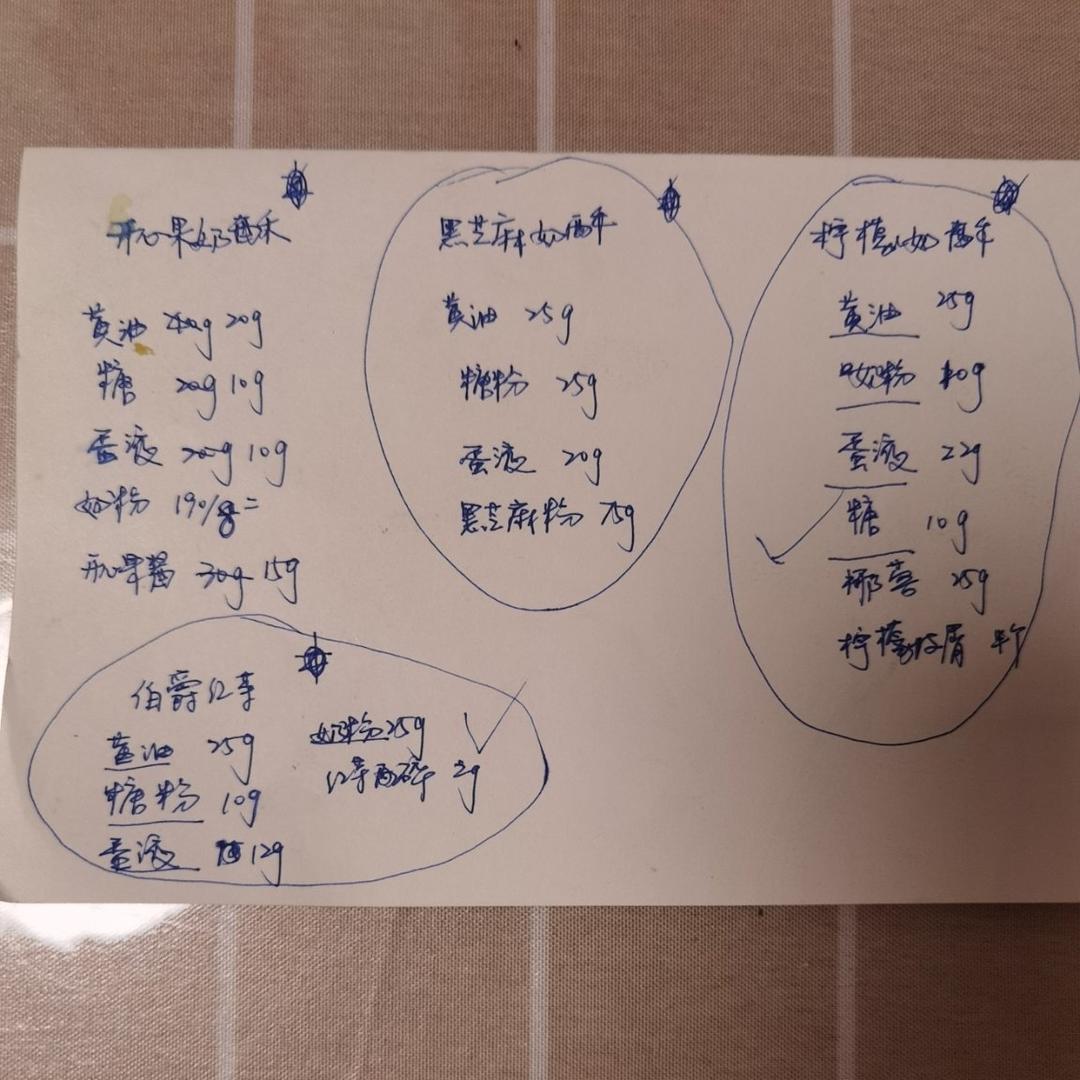 开心果奶酥
黄油 40g 20g
糖 20g 10g
蛋液 20g 10g
奶粉 190/
开心果酱 30g 15g
黑芝麻奶
黄油 25g
糖粉 25g
蛋液 20g
黑芝麻粉 75g
柠檬奶
黄油 25g
奶粉 10g
蛋液 22g
糖 10g
椰蓉 25g
柠檬皮屑 半个
伯爵红茶
黄油 25g
糖粉 10g
蛋液 12g
奶粉 25g
红茶 碎 2g